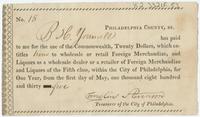 PHILADELPHIA COUNTY, ss.
No. 18
R. H. Youndt has paid
to me for the use of the Commonwealth, Twenty Dollars, which en-
titles him to wholesale or retail Foreign Merchandize, and
Liquors as a wholesale dealer or a retailer of Foreign Merchandize
and Liquors of the Fifth class, within the City of Philadelphia, for
One Year, from the first day of May, one thousand eight hundred
and thirty - five
Treasurer of the City of Philadelphia.